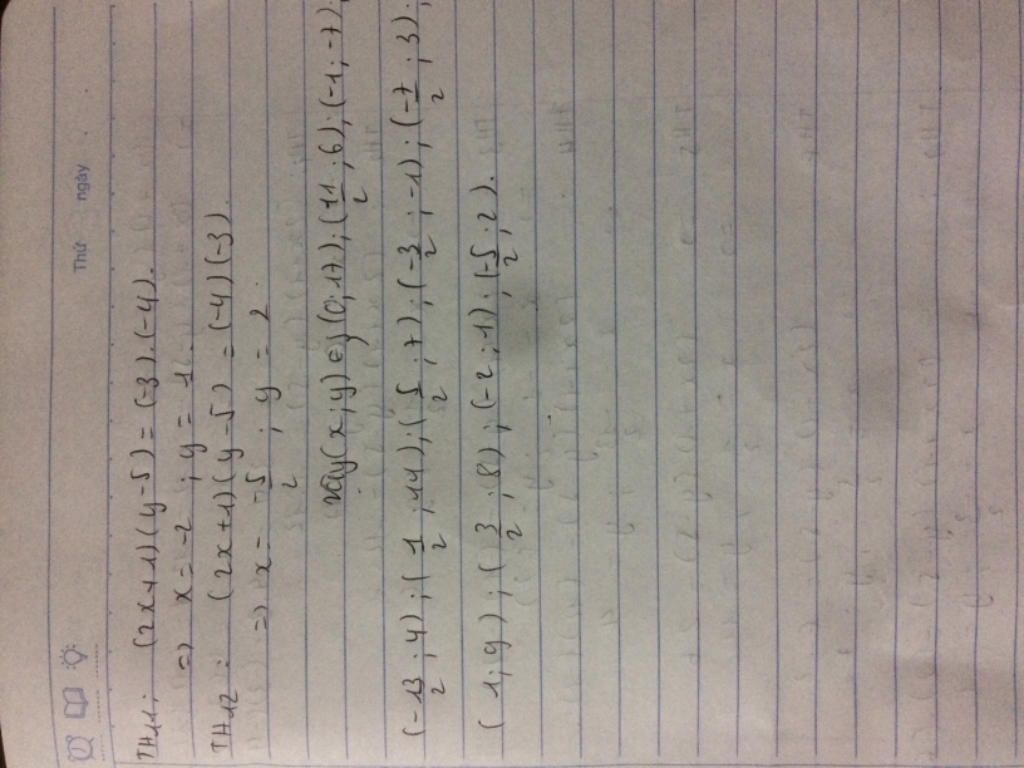 Thứ ngày
TH11: (2x+1)(y-5)=(-3).(-4).
=) x=-2 ; y=1.
TH12: (2x+1)(y-5)=(-4)(-3).
=) x=-5/2 ; y=2.
Vậy(x;y)∈{(0;17);(11/2;6);(-1;-7);
(-13/2;4);(1/2;11);(5/2;7);(-3/2;-1);(-7/2;3);
(1;9);(3/2;8);(-2;1);(-5/2;2).